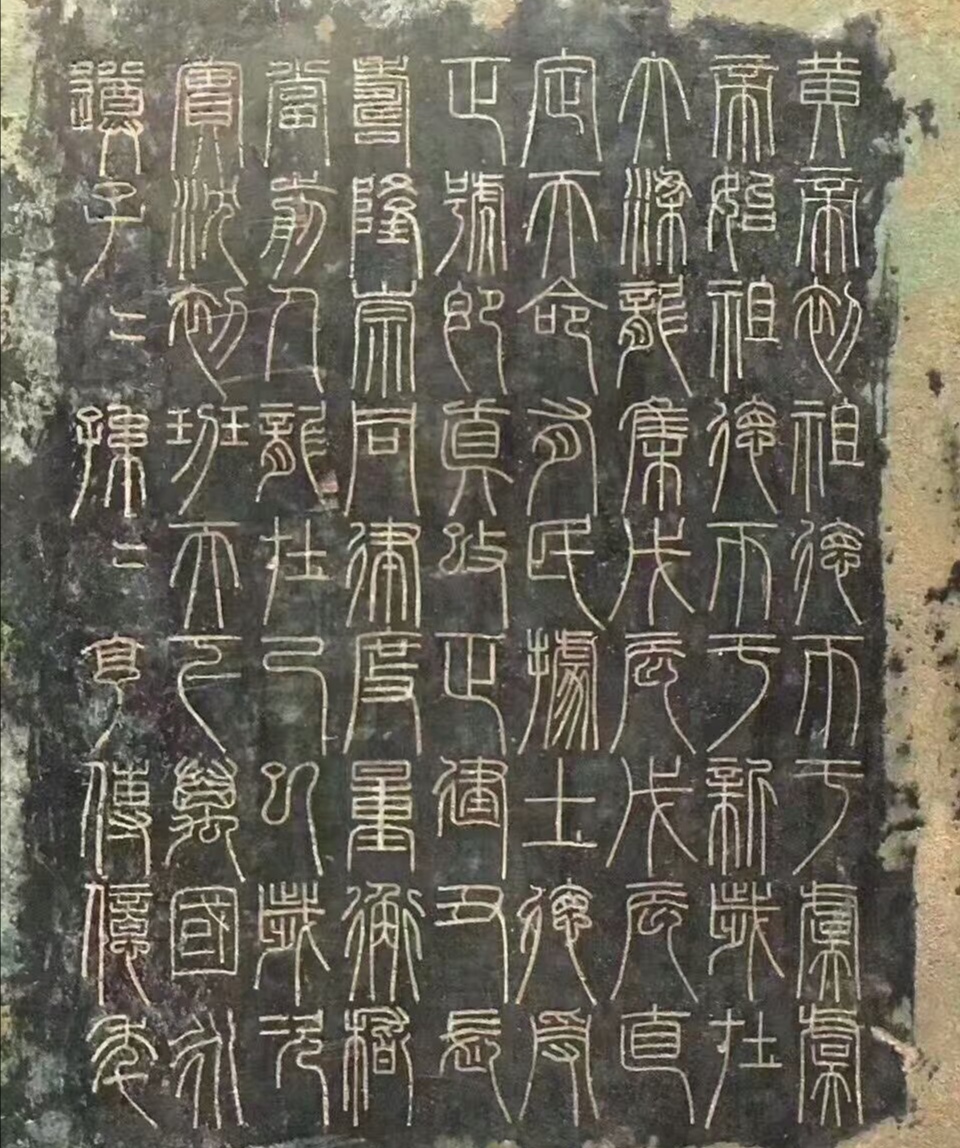 黃帝初祖德帀于虞虞
帝始祖德帀于新歲在
大梁龍集戊辰戊辰直
定天命有民據土德受
正號即真改正建丑長
壽隆崇同律度量衡稽
當前人龍在己巳歲次
實沈初班天下萬國永
遵子子孫孫享傳億年